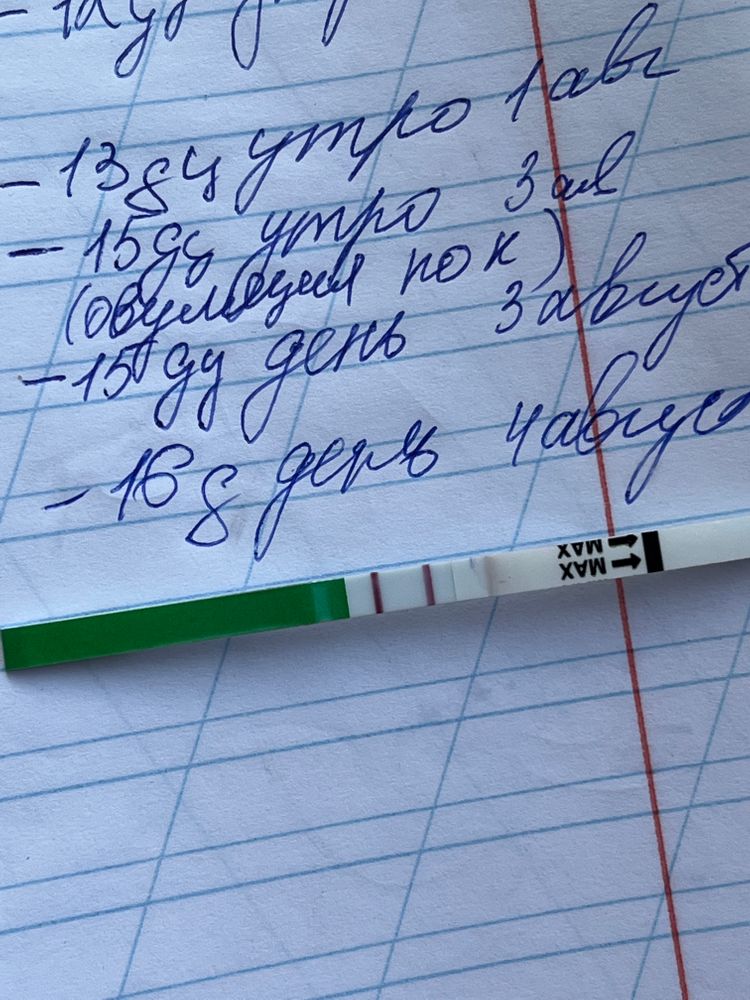 - 13 дц утро 1 авг
- 15 дц утро 3 ав
(овуляция по к)
- 15 дц день 3 август
- 16 д день 4 август
MAX
MAX